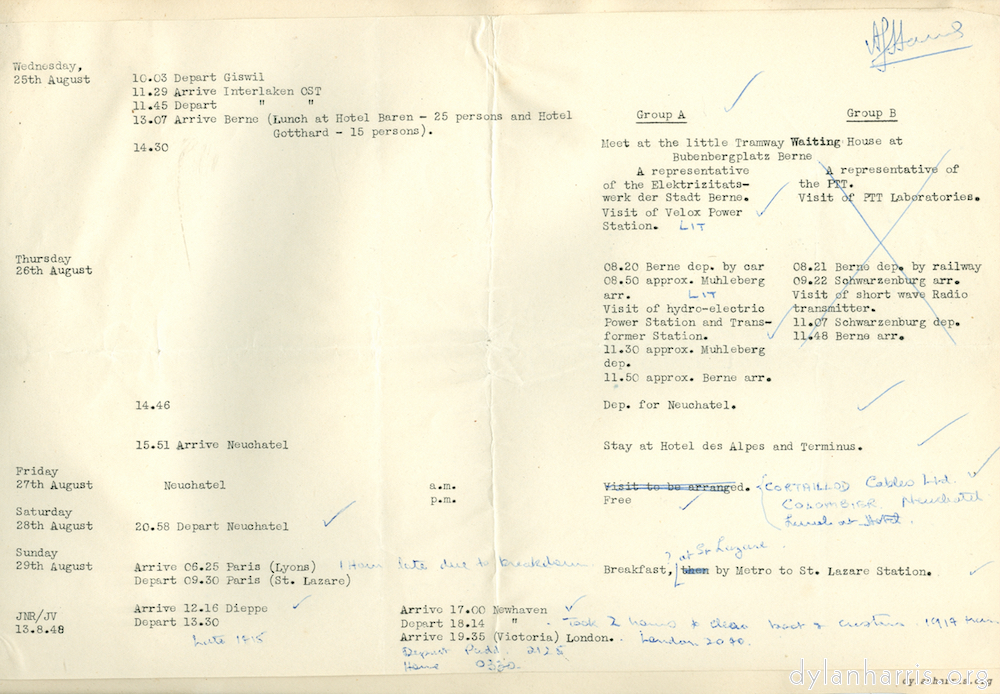 Wednesday,
25th August
10.03 Depart Giswil
11.29 Arrive Interlaken OST
11.45 Depart " "
13.07 Arrive Berne (Lunch at Hotel Baren - 25 persons and Hotel
Gotthard - 15 persons).
14.30
Group A Group B
Meet at the little Tramway Waiting House at
Bubenbergplatz Berne
A representative A representative of
of the Elektrizitats- the PTT.
werk der Stadt Berne. Visit of PTT Laboratories.
Visit of Velox Power
Station. LIT
Thursday
26th August
08.20 Berne dep. by car 08.21 Berne dep. by railway
08.50 approx. Muhleberg 09.22 Schwarzenburg arr.
arr. LIT Visit of short wave Radio
Visit of hydro-electric transmitter.
Power Station and Trans- 11.07 Schwarzenburg dep.
former Station. 11.48 Berne arr.
11.30 approx. Muhleberg
dep.
11.50 approx. Berne arr.
14.46 Dep. for Neuchatel.
15.51 Arrive Neuchatel Stay at Hotel des Alpes and Terminus.
Friday
27th August Neuchatel a.m. Visit to be arranged. CORTAILLOD Cables Ltd.
p.m. Free COLOMBIER Neuchatel
Lunch at Hotel.
Saturday
28th August 20.58 Depart Neuchatel
Sunday
29th August Arrive 06.25 Paris (Lyons) 1 Hour late due to breakdown
Depart 09.30 Paris (St. Lazare)
? at St Lazare
Breakfast, then by Metro to St. Lazare Station.
Arrive 12.16 Dieppe Arrive 17.00 Newhaven
JNR/JV Depart 13.30 Depart 18.14 " Took 2 hours to clear boat &
13.8.48
Late 1315 Arrive 19.35 (Victoria) London. London 20
Depart Padd. 2125
Home
dylanharris.org